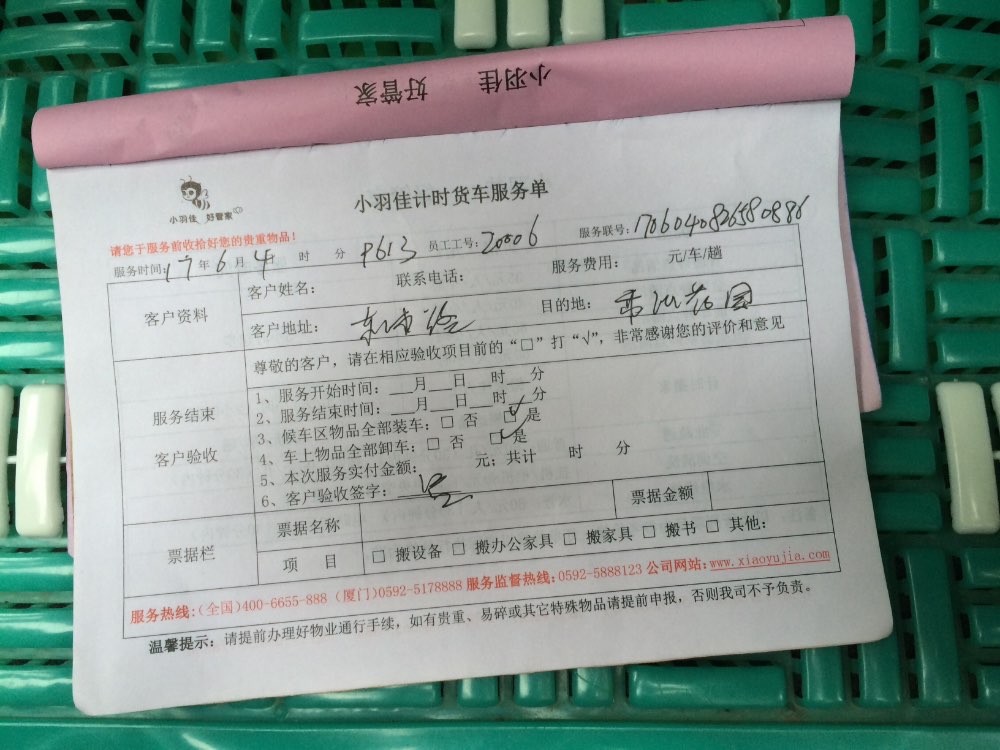 小羽佳 好管家
小羽佳 好管家
小羽佳计时货车服务单
请您于服务前收拾好您的贵重物品！
服务时间：17年6月4 时 分 9613 员工工号：20006 服务联号：
客户资料
客户姓名： 联系电话： 服务费用： 元/车/趟
客户地址： 目的地： 花园
服务结束
客户验收
尊敬的客户，请在相应验收项目前的“□”打“√”，非常感谢您的评价和意见
1、服务开始时间：___月___日___时___分
2、服务结束时间：___月___日___时___分
3、候车区物品全部装车：□ 否 ☑ 是
4、车上物品全部卸车：□ 否 ☑ 是
5、本次服务实付金额： 元；共计 时 分
6、客户验收签字：
票据栏
票据名称 票据金额
项 目 □ 搬设备 □ 搬办公家具 □ 搬家具 □ 搬书 □ 其他：
服务热线：(全国)400-6655-888 (厦门)0592-5178888 服务监督热线：0592-5888123 公司网站：www.xiaoyujia.com
温馨提示：请提前办理好物业通行手续，如有贵重、易碎或其它特殊物品请提前申报，否则我司不予负责。